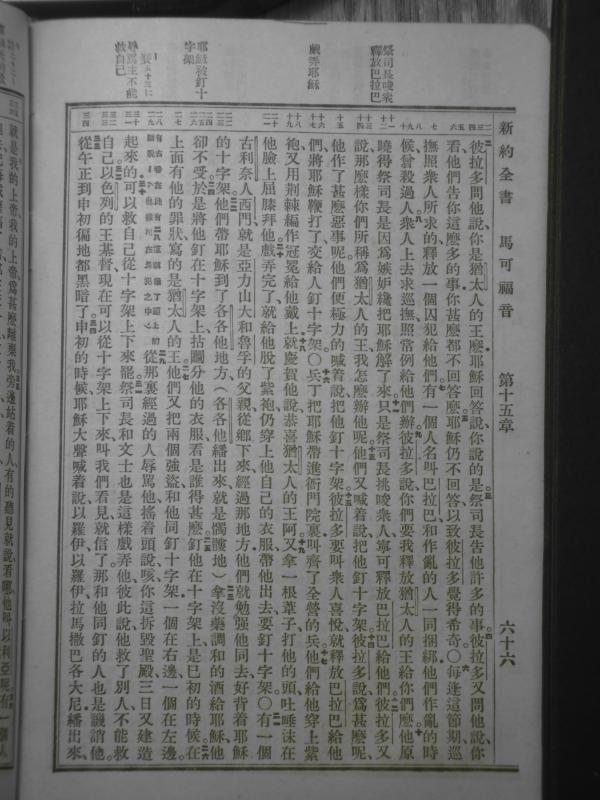 新約全書 馬可福音 第十五章 六十六
祭司長唆衆
釋放巴拉巴
戲弄耶穌
耶穌被釘十
字架
辱罵主不能
救自己
彼拉多問他說你是猶太人的王麽耶穌回答說你說的是祭司長告他許多的事彼拉多又問他說你
看他們告你這麽多的事你甚麽都不回答麽耶穌仍不回答以致彼拉多覺得希奇〇每逢這節期巡
撫照衆人所求的釋放一個囚犯給他們有一個人名叫巴拉巴和作亂的人一同捆綁他們作亂的時
候曾殺過人衆人上去求巡撫照常例給他們辦彼拉多說你們要我釋放猶太人的王給你們麽他原
曉得祭司長是因爲嫉妒纔把耶穌解了來只是祭司長挑唆衆人寧可釋放巴拉巴給他們彼拉多又
說那麽樣你們所稱爲猶太人的王我怎麽辦他呢他們又喊着說把他釘十字架彼拉多說爲甚麽呢
他作了甚麽惡事呢他們便極力的喊着說把他釘十字架彼拉多要叫衆人喜悅就釋放巴拉巴給他
們將耶穌鞭打了交給人釘十字架〇兵丁把耶穌帶進衙門院裏叫齊了全營的兵他們給他穿上紫
袍又用荆棘編作冠冕給他戴上就慶賀他說恭喜猶太人的王阿又拿一根葦子打他的頭吐唾沫在
他臉上屈膝拜他戲弄完了就給他脫了紫袍仍穿上他自己的衣服帶他出去要釘十字架〇有一個
古利奈人西門就是亞力山大和魯孚的父親從鄉下來經過那地方他們就勉强他同去好背着耶穌
的十字架他們帶耶穌到了各各他地方（各各他繙出來就是髑髏地）拿沒藥調和的酒給耶穌他
卻不受於是將他釘在十字架上拈鬮分他的衣服看是誰得甚麽釘他在十字架上是巳初的時候在
上面有他的罪狀寫的是猶太人的王他們又把兩個強盜和他同釘十字架一個在右邊一個在左邊
從那裏經過的人辱罵他搖着頭說咳你這拆毀聖殿三日又建造
起來的可以救自己從十字架上下來罷祭司長和文士也是這樣戲弄他彼此說他救了別人不能救
自己以色列的王基督現在可以從十字架上下來叫我們看見就信了那和他同釘的人也是譏誚他
從午正到申初徧地都黑暗了申初的時候耶穌大聲喊着說以羅伊以羅伊拉馬撒巴各大尼繙出來
就是我的上帝我的上帝爲甚麽離棄我旁邊站着的人有的聽見就說看哪他叫以利亞呢有一個人